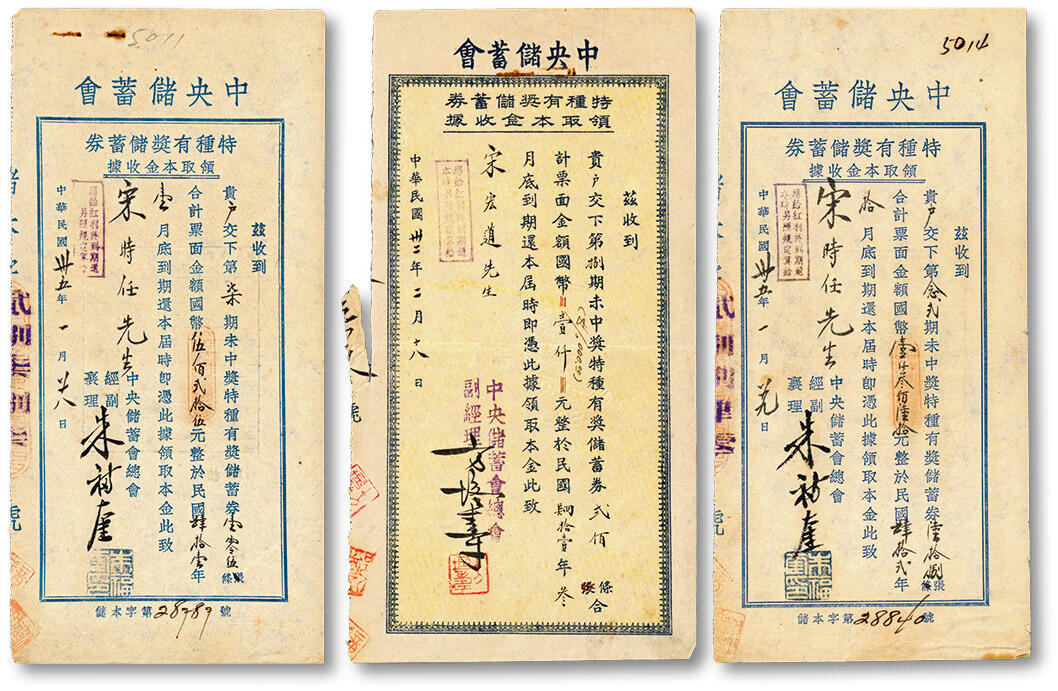 5011
中央儲蓄會
特種有獎儲蓄券
領取本金收據
茲收到
貴戶交下第柒期未中獎特種有獎儲蓄券壹零伍張條
合計票面金額國幣伍佰弍拾伍元整於民國肆拾壹年
壹月底到期還本屆時即憑此據領取本金此致
宋時任先生
中央儲蓄會總會
經副襄理
中華民國卅五年一月廿八日
儲本字第28787號
中央儲蓄會
特種有獎儲蓄券
領取本金收據
茲收到
貴戶交下第捌期未中獎特種有獎儲蓄券弍佰條張合
計票面金額國幣壹仟元整於民國肆拾壹年叁
月底到期還本屆時即憑此據領取本金此致
宋宏道先生
中華民國卅二年二月十八日
中央儲蓄會總會
副經理
5014
中央儲蓄會
特種有獎儲蓄券
領取本金收據
茲收到
貴戶交下第念弍期未中獎特種有獎儲蓄券陸拾捌張條
合計票面金額國幣壹仟叁佰陸拾元整於民國肆拾弍年
拾月底到期還本屆時即憑此據領取本金此致
宋時任先生
中央儲蓄會總會
經副襄理
中華民國卅五年一月廿九日
儲本字第28840號